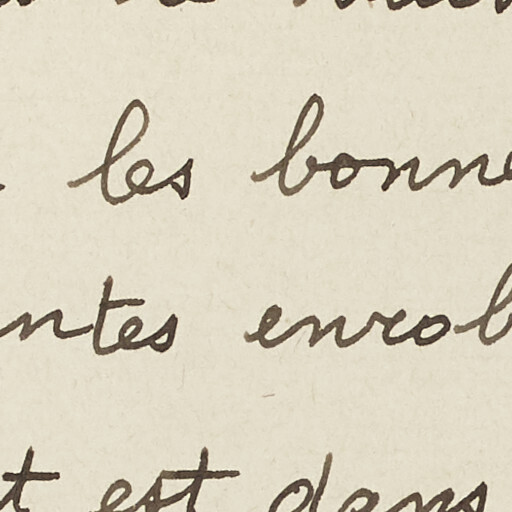 les bonne
ntes enrob
t est dans